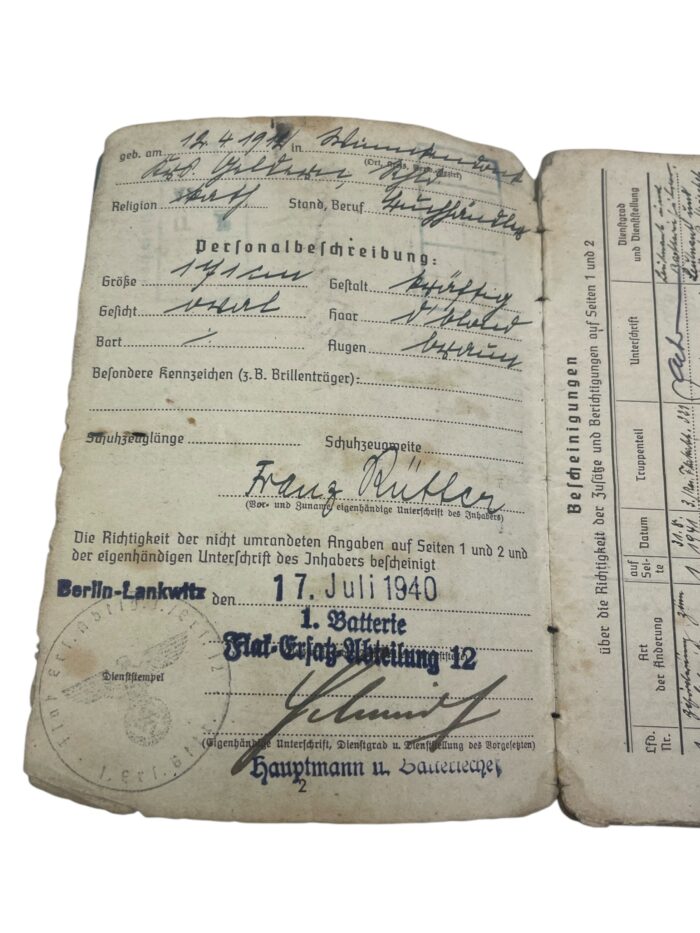 geb. am 12.4.191 in
(Ort, Kreis, Verw.-Bezirk)
Krs. Geldern,
Religion kath Stand, Beruf Buchhändler
Personalbeschreibung:
Größe 171 cm Gestalt kräftig
Gesicht oval Haar d'blond
Bart ·/. Augen braun
Besondere Kennzeichen (z. B. Brillenträger):
Schuhzeuglänge Schuhzeugweite
Franz Rütter
(Vor- und Zuname, eigenhändige Unterschrift des Inhabers)
Die Richtigkeit der nicht umrandeten Angaben auf Seiten 1 und 2 und
der eigenhändigen Unterschrift des Inhabers bescheinigt
Berlin-Lankwitz den 17. Juli 1940
1. Batterie
Flak-Ersatz-Abteilung 12
Dienststempel
Schmidt
(Eigenhändige Unterschrift, Dienstgrad u. Dienststellung des Vorgesetzten)
Hauptmann u. Batteriechef
2
Bescheinigungen
über die Richtigkeit der Zusätze und Berichtigungen auf Seiten 1 und 2
Lfd. Nr.
Art der Änderung
auf Sei-te
Datum
Truppenteil
Unterschrift
Dienstgrad und Dienststellung